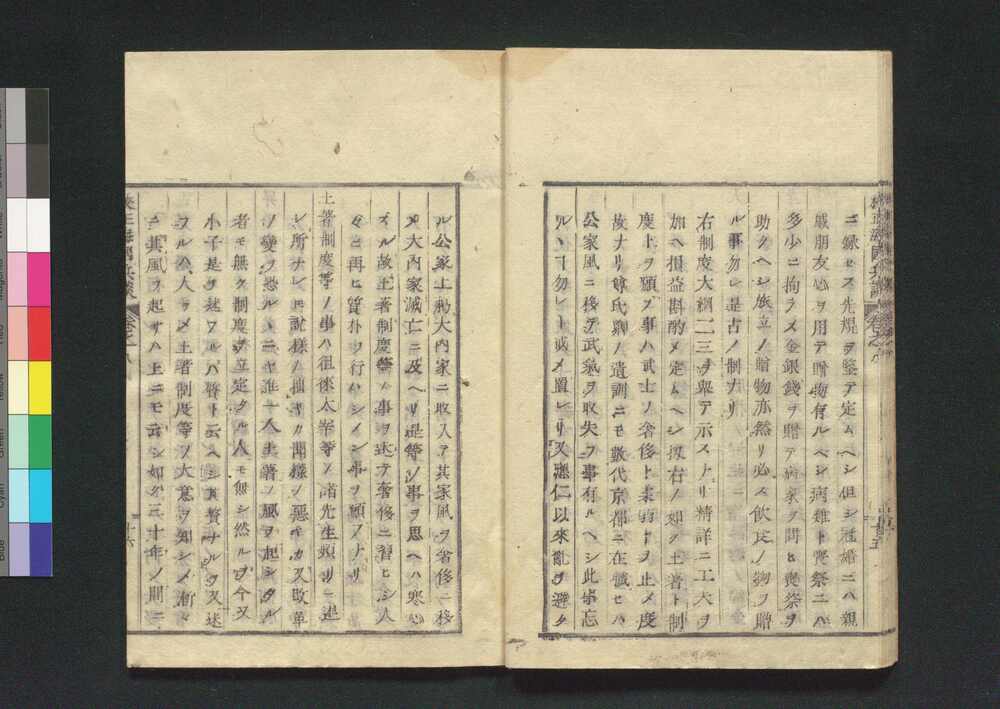 ニ縁セズ先規ヲ鑒テ定ムヘシ但シ冠婚ニハ親
戚朋友必ヲ用テ贈物有ルベシ病難ト喪祭ニハ
多少ニ拘ラズ金銀錢ヲ贈テ病家ヲ問ヒ喪祭ヲ
助クヘシ旅立ノ贈物亦然リ必ズ飲食ノ物ヲ贈
ル事勿レ是古ノ制ナリ
右制度大綱二三ヲ舉テ示スナリ精詳ニ工夫ヲ
加ヘ損益斟酌メ定ムヘシ扨右ノ如ク土著ト制
度トヲ願フ事ハ武士ノ奢侈ト柔弱トヲ止メ度
故ナリ尊氏卿ノ遺訓ニモ數代京都ニ在職セハ
公家風ニ移テ武藝ヲ取失フ事有ルヘシ此事忘
ルヽ丁勿レト戒メ置レリ又應仁以來亂ヲ避タ
校正海國兵談 卷之八
ル公家上﨟大内家ニ收入テ其家風ヲ奢侈ニ移
メ大内家滅亡ニ及ヘリ是等ノ事ヲ思ヘハ寒心
スル故土著制度等ノ事ヲ述テ奢侈ニ習ヒシ人
々ニ再ヒ質朴ヲ行ハシメン事ヲ願フナリ
土著制度等ノ事ハ徂徠太宰等ノ諸先生頻リニ述
シ所ナレトモ說樣ノ拙キカ聞樣ノ惡キカ又改革
ノ變ヲ恐ルヽニヤ誰一人土著ノ風ヲ起シタル
者モ無ク制度ヲ立定タル人モ無シ然ルヲ今又
小子是ヲ述フルハ贅ト云ヘシ其贅ナルヲ又述
フルハ人ヲメ土著制度等ノ大意ヲ知シメ漸々
ニ其風ヲ起サハ上ニモ云シ如ク三十年ノ間ニ
校正海國兵談 卷之八
十六